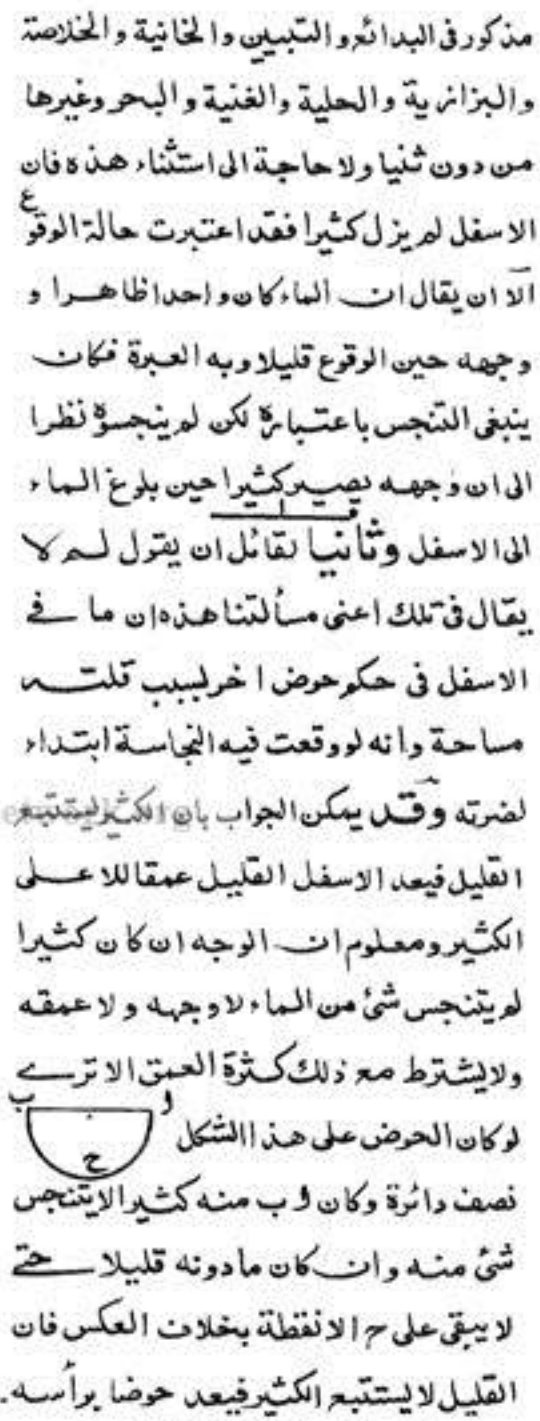 مذكور فى البدائع و التبيين و الخانية و الخلاصة
والبزازية والحلية والغنية والبحر وغيرها
من دون ثنيا ولا حاجة الى استثناء هذه فان
الاسفل لم يزل كثيرا فقد اعتبرت حالة الوقوع
الّا ان يقال ان الماء كان واحدا ظاهرا و
وجهه حين الوقوع قليلا وبه العبرة فكان
ينبغى التنجس باعتباره لكن لم ينجسوه نظرا
الى ان وجهه يصير كثيرا حين بلوغ الماء
الى الاسفل وثانيا لقائل ان يقول لم لا
يقال فى تلك اعنى مسألتنا هذه ان ما فے
الاسفل فى حكم حوض اخر لسبب قلته
مساحة وانه لو وقعت فيه النجاسة ابتداء
لضرته وقد يمكن الجواب بان الكثير ليستتبع
القليل فيعد الاسفل القليل عمقا للاعلى
الكثير ومعلوم ان الوجه ان كان كثيرا
لم يتنجس شئ من الماء لا وجهه ولا عمقه
ولا يشترط مع ذلك كثرة العمق الا ترے
لو كان الحوض على هذا الشكل ا ب ح
نصف دائرة وكان ا ب منه كثيرا لا يتنجس
شئ منه وان كان ما دونه قليلا حتے
لا يبقى على ح الا نقطة بخلاف العكس فان
القليل لا يستتبع الكثير فيعد حوضا برأسه.